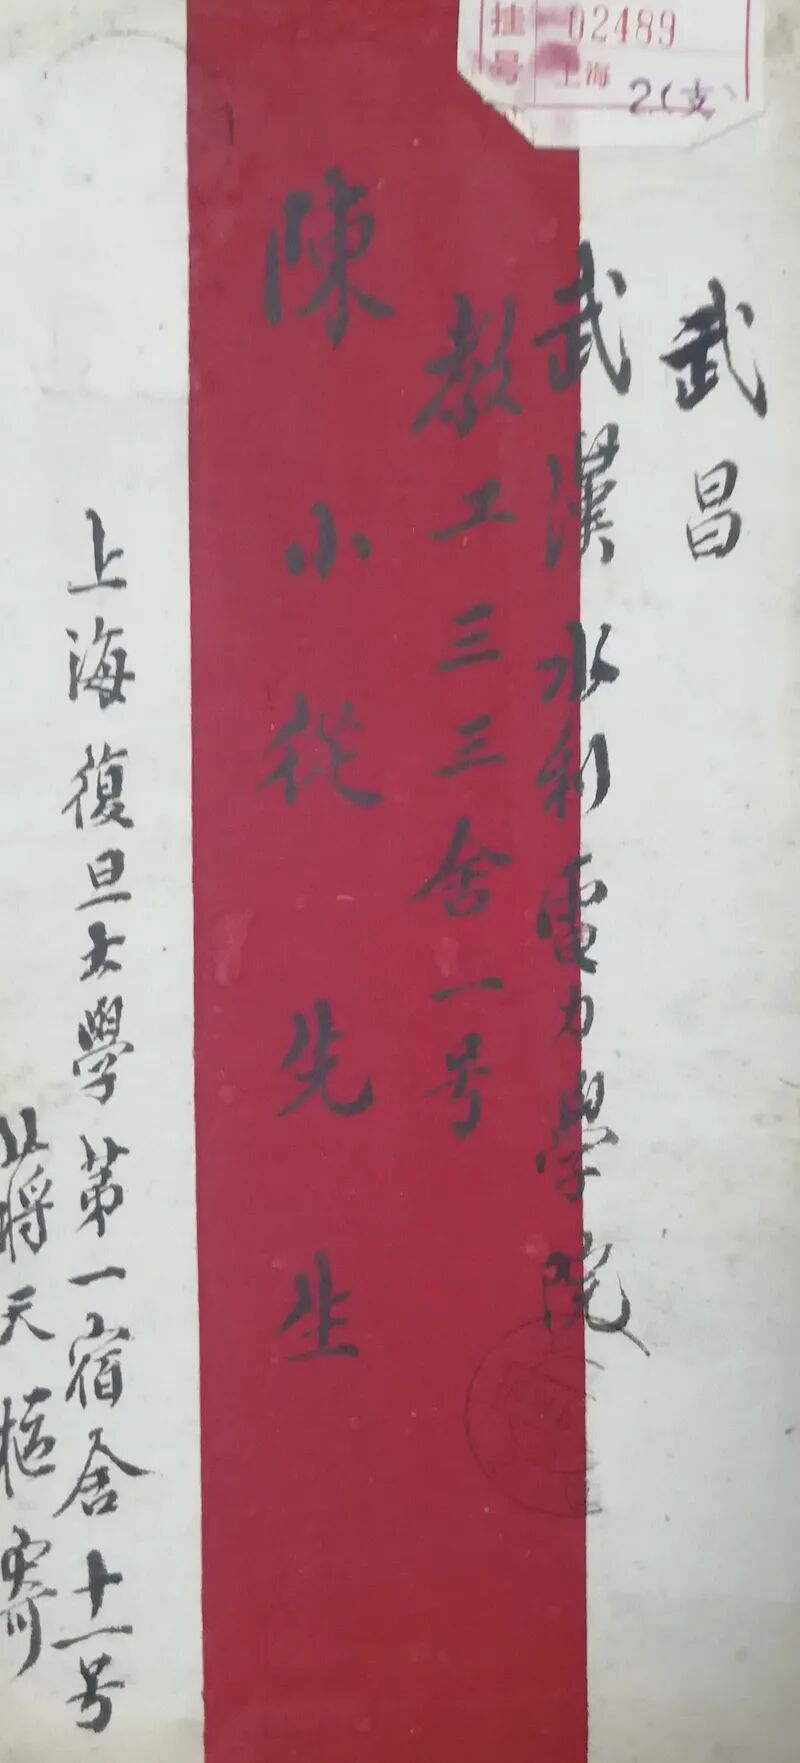 挂号 02489
上海
2(支)
武昌
武漢水利電力學院
教工三三舍一号
陳小從先生
上海復旦大學第一宿舍十一号
蔣天樞寄